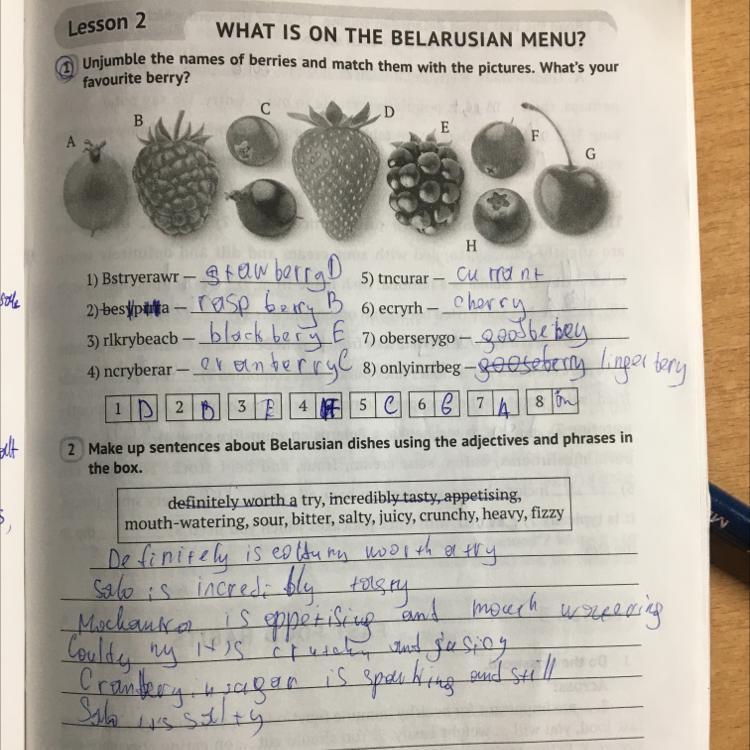 Lesson 2
WHAT IS ON THE BELARUSIAN MENU?
1 Unjumble the names of berries and match them with the pictures. What's your
favourite berry?
A
B
C
D
E
F
G
H
1) Bstryerawr – strawberry D
2) rasp berry B
3) rlkrybeacb – black bery E
4) ncryberar – cranberry C
5) tncurar – currant
6) ecryrh – cherry
7) oberserygo –
8) onlyinrrbeg – gooseberry linger bery
1 D 2 B 3 E 4 5 C 6 G 7 A 8
2 Make up sentences about Belarusian dishes using the adjectives and phrases in
the box.
definitely worth a try, incredibly tasty, appetising,
mouth-watering, sour, bitter, salty, juicy, crunchy, heavy, fizzy
Definitely is worth a try
Salo is incredibly
is appetising and
it is and
is and still
Salo is salty